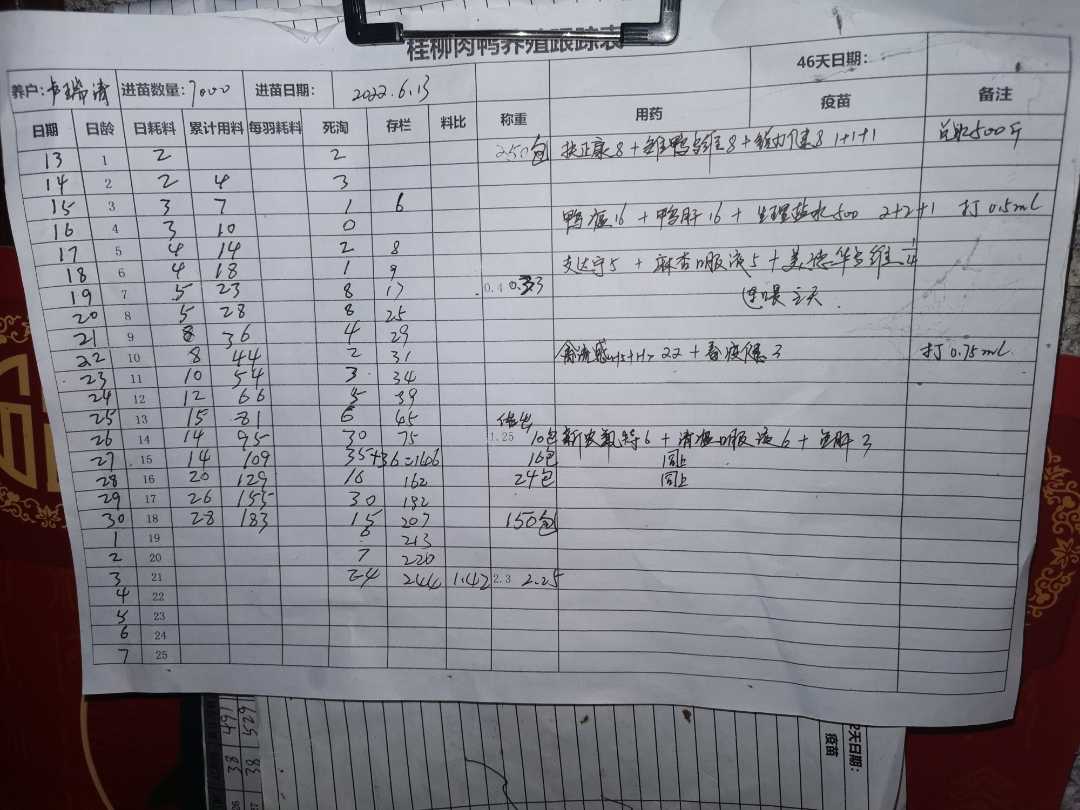 桂柳肉鸭养殖跟踪表
养户: 卢瑞涛 进苗数量: 7000 进苗日期: 2022.6.13 46天日期:
日期 日龄 日耗料 累计用料 每羽耗料 死淘 存栏 料比 称重 用药 疫苗 备注
13 1 2 2 250包 扶正康8+ 8+ 8 1+1+1 500斤
14 2 2 4 3
15 3 3 7 1 6
16 4 3 10 0 鸭瘟16+鸭肝16+生理盐水500 2+2+1 打0.5ml
17 5 4 14 2 8
18 6 4 18 1 9 支达宁5+麻杏口服液5+
19 7 5 23 8 17 0.4 0.33 连喂三天.
20 8 5 28 8 25
21 9 8 36 4 29
22 10 8 44 2 31 禽流感H5+H7 22+ 3 打0.75ml.
23 11 10 54 3 34
24 12 12 66 5 39
25 13 15 81 6 45
26 14 14 95 30 75 1.25 10包 6+清瘟口服液6+ 3
27 15 14 109 35+36=166 16包 同上
28 16 20 129 16 162 24包 同上
29 17 26 155 30 192
30 18 28 183 15 207 150包
1 19 6 213
2 20 7 220
3 21 24 244 1.42 2.3 2.25
4 22
5 23
6 24
7 25
38 491
38 529
2天日期:
疫苗